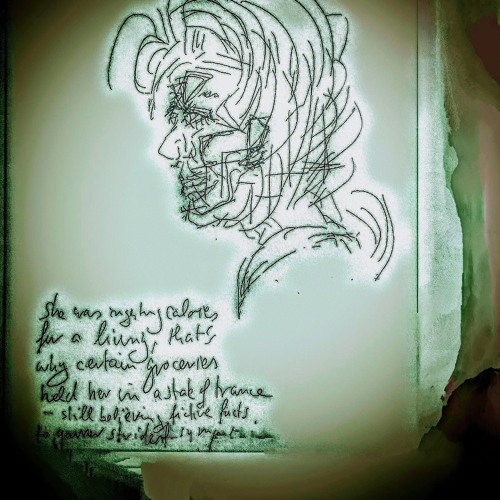 She was calories
for a living, that's
why certain groceries
held her in a state of trance
— still believing fictive facts.
to strident